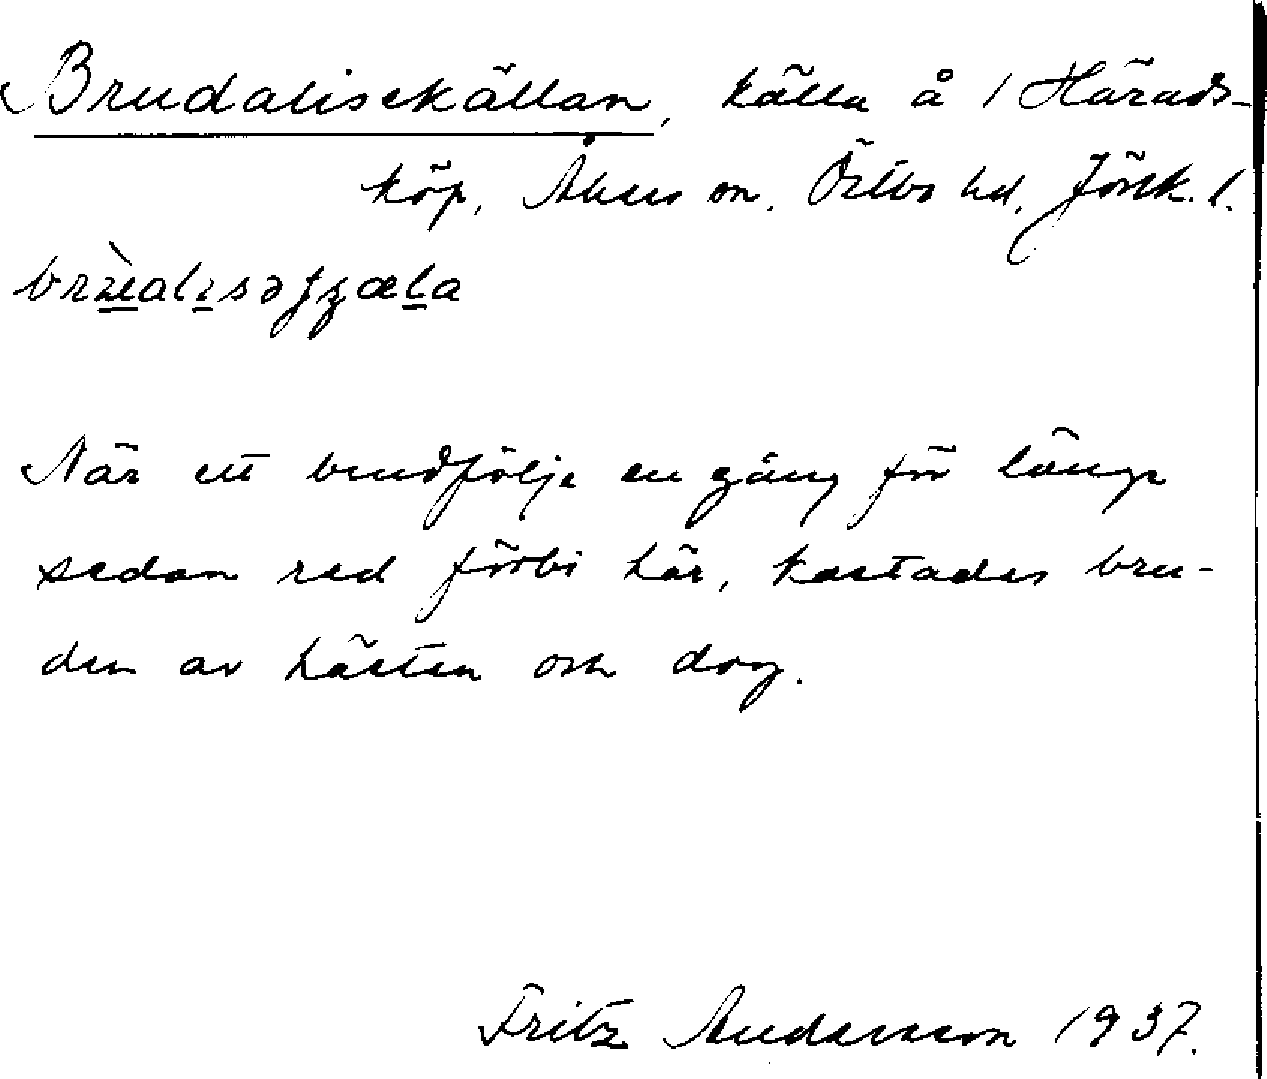 Brudalisekällan, källa å 1 Härads-
köp, Åkers sn. Östbo hd. Jönk. l.
När ett brudfölje en gång för länge
sedan red förbi här, kastades bru-
den av hästen och dog.
Fritz Andersson 1937.